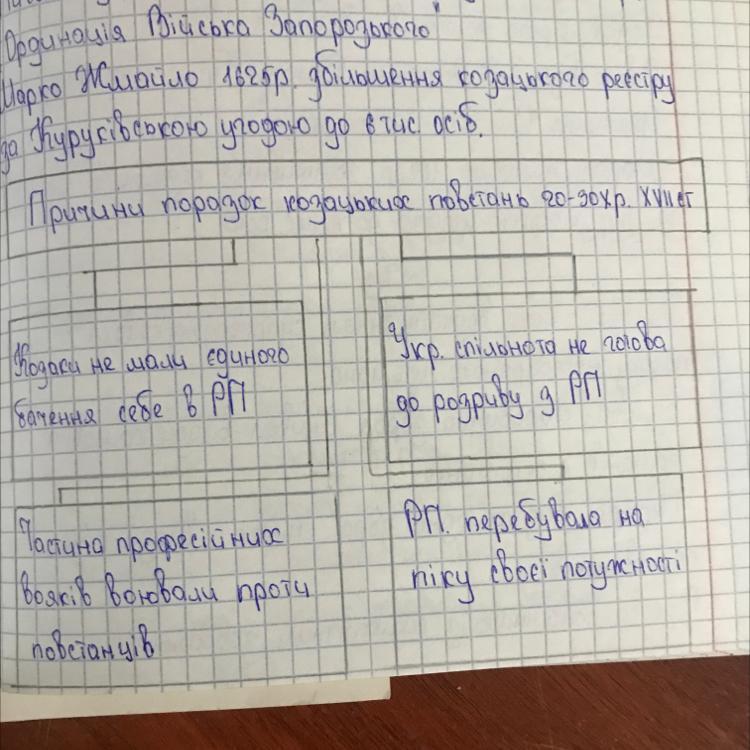 Ординація Війська Запорозького
Марко Жмайло 1625р. збільшення козацького реєстру
за Куруківською угодою до 6 тис. осіб.
Причини поразок козацьких повстань 20-30х р. XVII ст
Козаки не мали єдиного
бачення себе в РП
Укр. спільнота не готова
до розриву з РП
Частина професійних
вояків воювали проти
повстанців
РП. перебувала на
піку своєї потужності